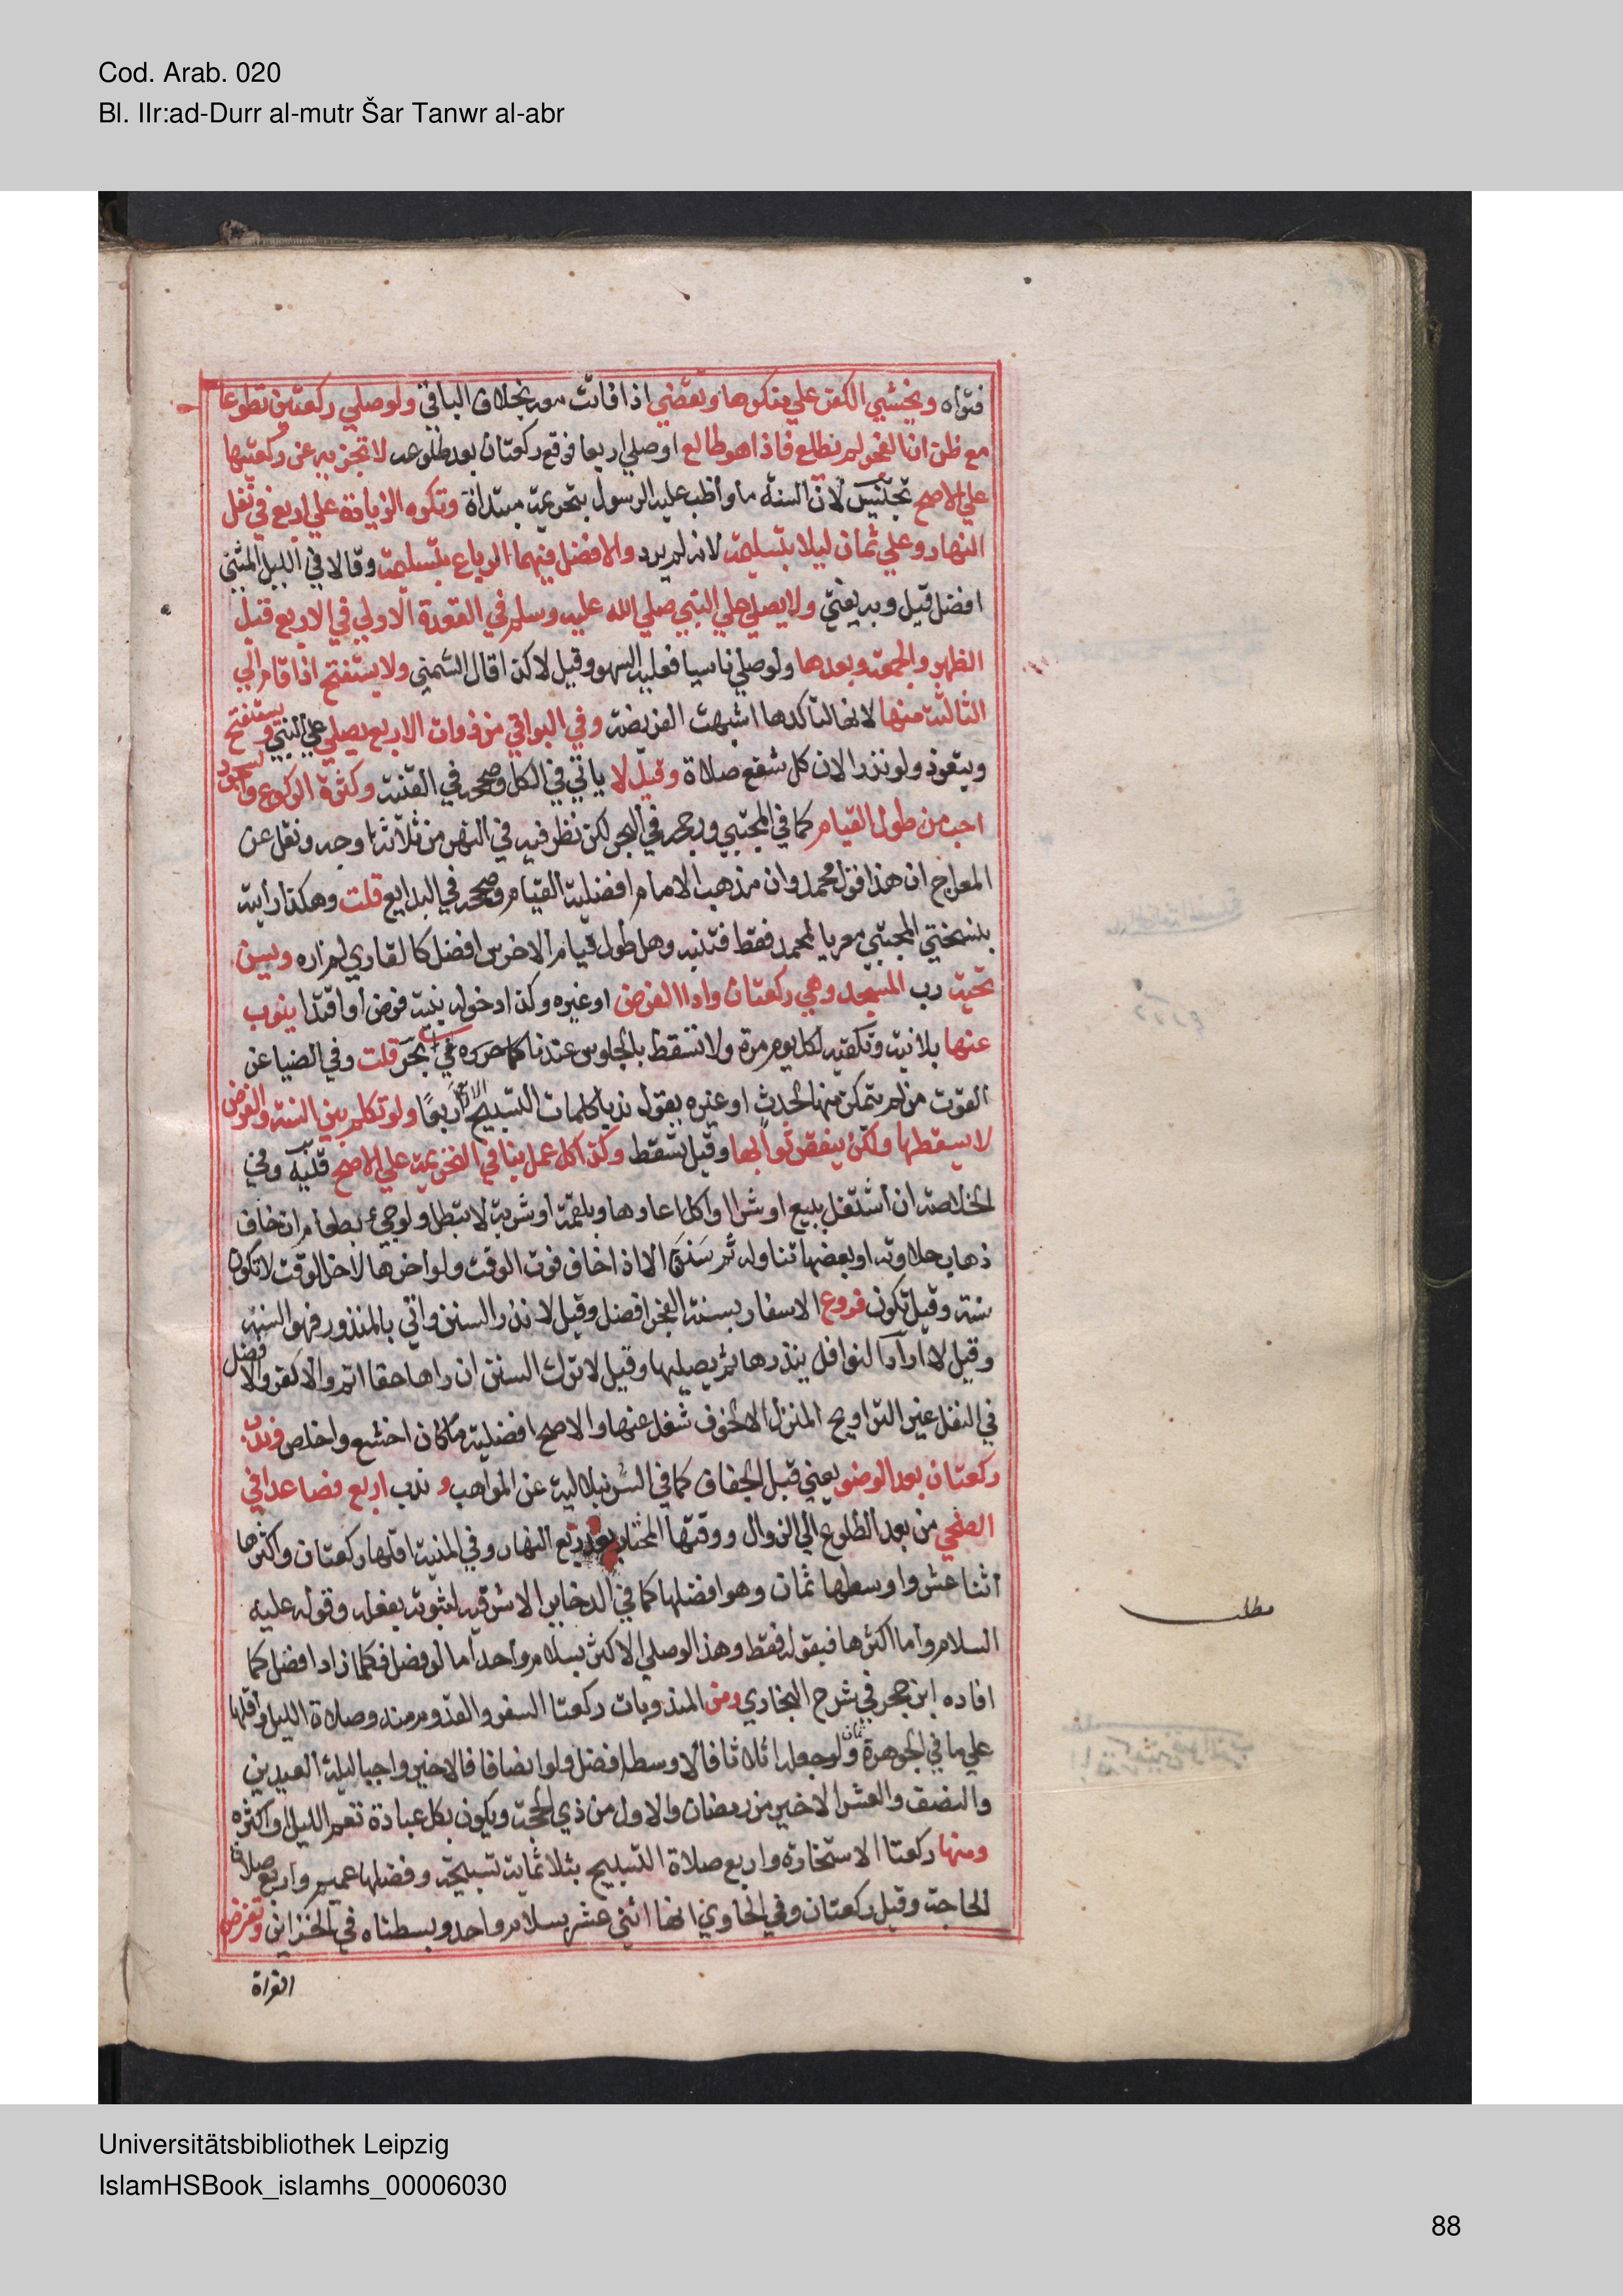 Cod. Arab. 020
Bl. IIr:ad-Durr al-mutr Šar Tanwr al-abr
فتواه ويخشي الكفر علي منكرها وتقضي اذا فاتت معه بخلاف الباقي ولو صلي ركعتين تطوعا
مع ظن ان الفجر لم يطلع فاذا هو طالع او صلي اربعا فوقع ركعتان بعد طلوعه لا تجزيه عن ركعتيها
علي الاصح تجنيس لان السنة ما واظب عليه الرسول بتحريمة مبتداة وتكره الزيادة علي اربع في نفل
النهار وعلي ثمان ليلا بتسليمة لانه لم يرد والافضل فيهما الرباع بتسليمة وقالا في الليل المثني
افضل قيل وبه يفتي ولا يصلي علي النبي صلي الله عليه وسلم في القعدة الاولي في الاربع قبل
الظهر والجمعة وبعدها ولو صلي ناسيا فعليه السهو وقيل لا كذا قال الشمني ولا يستفتح اذا قام الي
الثالثة منها لانها لتاكدها اشبهت الفريضة وفي البواقي من ذوات الاربع يصلي علي النبي ويستفتح
ويتعوذ ولو نذرا لان كل شفع صلاة وقيل لا ياتي في الكل وصححه في القنية وكثرة الركوع والسجود
احب من طول القيام كما في المجتبي ورجحه في البحر لكن نظر فيه في النهر من ثلاثة اوجه ونقل عن
المعراج ان هذا قول محمد وان مذهب الامام افضلية القيام وصححه في البدايع قلت وهكذا رايته
بنسختي المجتبي معزيا لمحمد فقط فتنبه وهل طول قيام الاخرس افضل كالقاري لم اره ويسن
تحية رب المسجد وهي ركعتان واداا الفرض او غيره وكذا دخوله بنية فرض او اقتدا ينوب
عنها بلا نية وتكفيه لكل يوم مرة ولا تسقط بالجلوس عندنا كما حرره في البحر قلت وفي الضيا عن
القوت من لم يتمكن منها لحدث او غيره يقول ندبا كلمات التسبيح الاربع اربعا ولو تكلم بين السنة والفرض
لا يسقطها ولكن ينقص ثوابها وقيل تسقط وكذا كل عمل ينافي التحريمة علي الاصح قنية وفي
الخلاصة ان اشتغل ببيع او شرا او اكل اعادها وبلقمة او شربة لا تبطل ولو جيء بطعام ان خاف
ذهاب حلاوته او بعضها تناوله ثم سنن الا اذا خاف فوت الوقت ولو اخرها لاخر الوقت لا تكون
سنة وقيل تكون فروع الاسفار بسنة الفجر افضل وقيل لا نذر السنن واتي بالمنذور فهو السنة
وقيل لا اراد النوافل ينذرها ثم يصليها وقيل لا ترك السنن ان راها حقا اثم والا كفر والافضل
في النفل غير التراويح المنزل الا لخوف شغل عنها والاصح افضلية ما كان اخشع واخلص وندب
ركعتان بعد الوضو يعني قبل الجفاف كما في الشرنبلالية عن المواهب وندب اربع فصاعدا في
الضحي من بعد الطلوع الي الزوال ووقتها المختار بعد ربع النهار وفي المنية اقلها ركعتان واكثرها
اثنا عشر واوسطها ثمان وهو افضلها كما في الدخاير الاشرفيه لثبوته بفعله وقوله عليه
السلام واما اكثرها فبقوله فقط وهذا لو صلي الاكثر بسلام واحد اما لو فصل فكلما زاد افضل كما
افاده ابن حجر في شرح البخاري ومن المندوبات ركعتا السفر والقدوم منه وصلاة الليل واقلها
علي ما في الجوهرة ثمان ولو جعله اثلاثا فالاوسط افضل ولو انصافا فالاخير واحيا ليلة العيدين
والنصف والعشر الاخير من رمضان والاول من ذي الحجة ويكون بكل عبادة تعم الليل او اكثره
ومنها ركعتا الاستخارة واربع صلاة التسبيح بثلاثماية تسبيحة وفضلها عميم واربع صلاة
الحاجة وقيل ركعتان وفي الحاوي انها اثني عشر بسلام واحد وبسطناه في الخزاين وتفرض
القراة
مطلب
Universitätsbibliothek Leipzig
IslamHSBook_islamhs_00006030
88